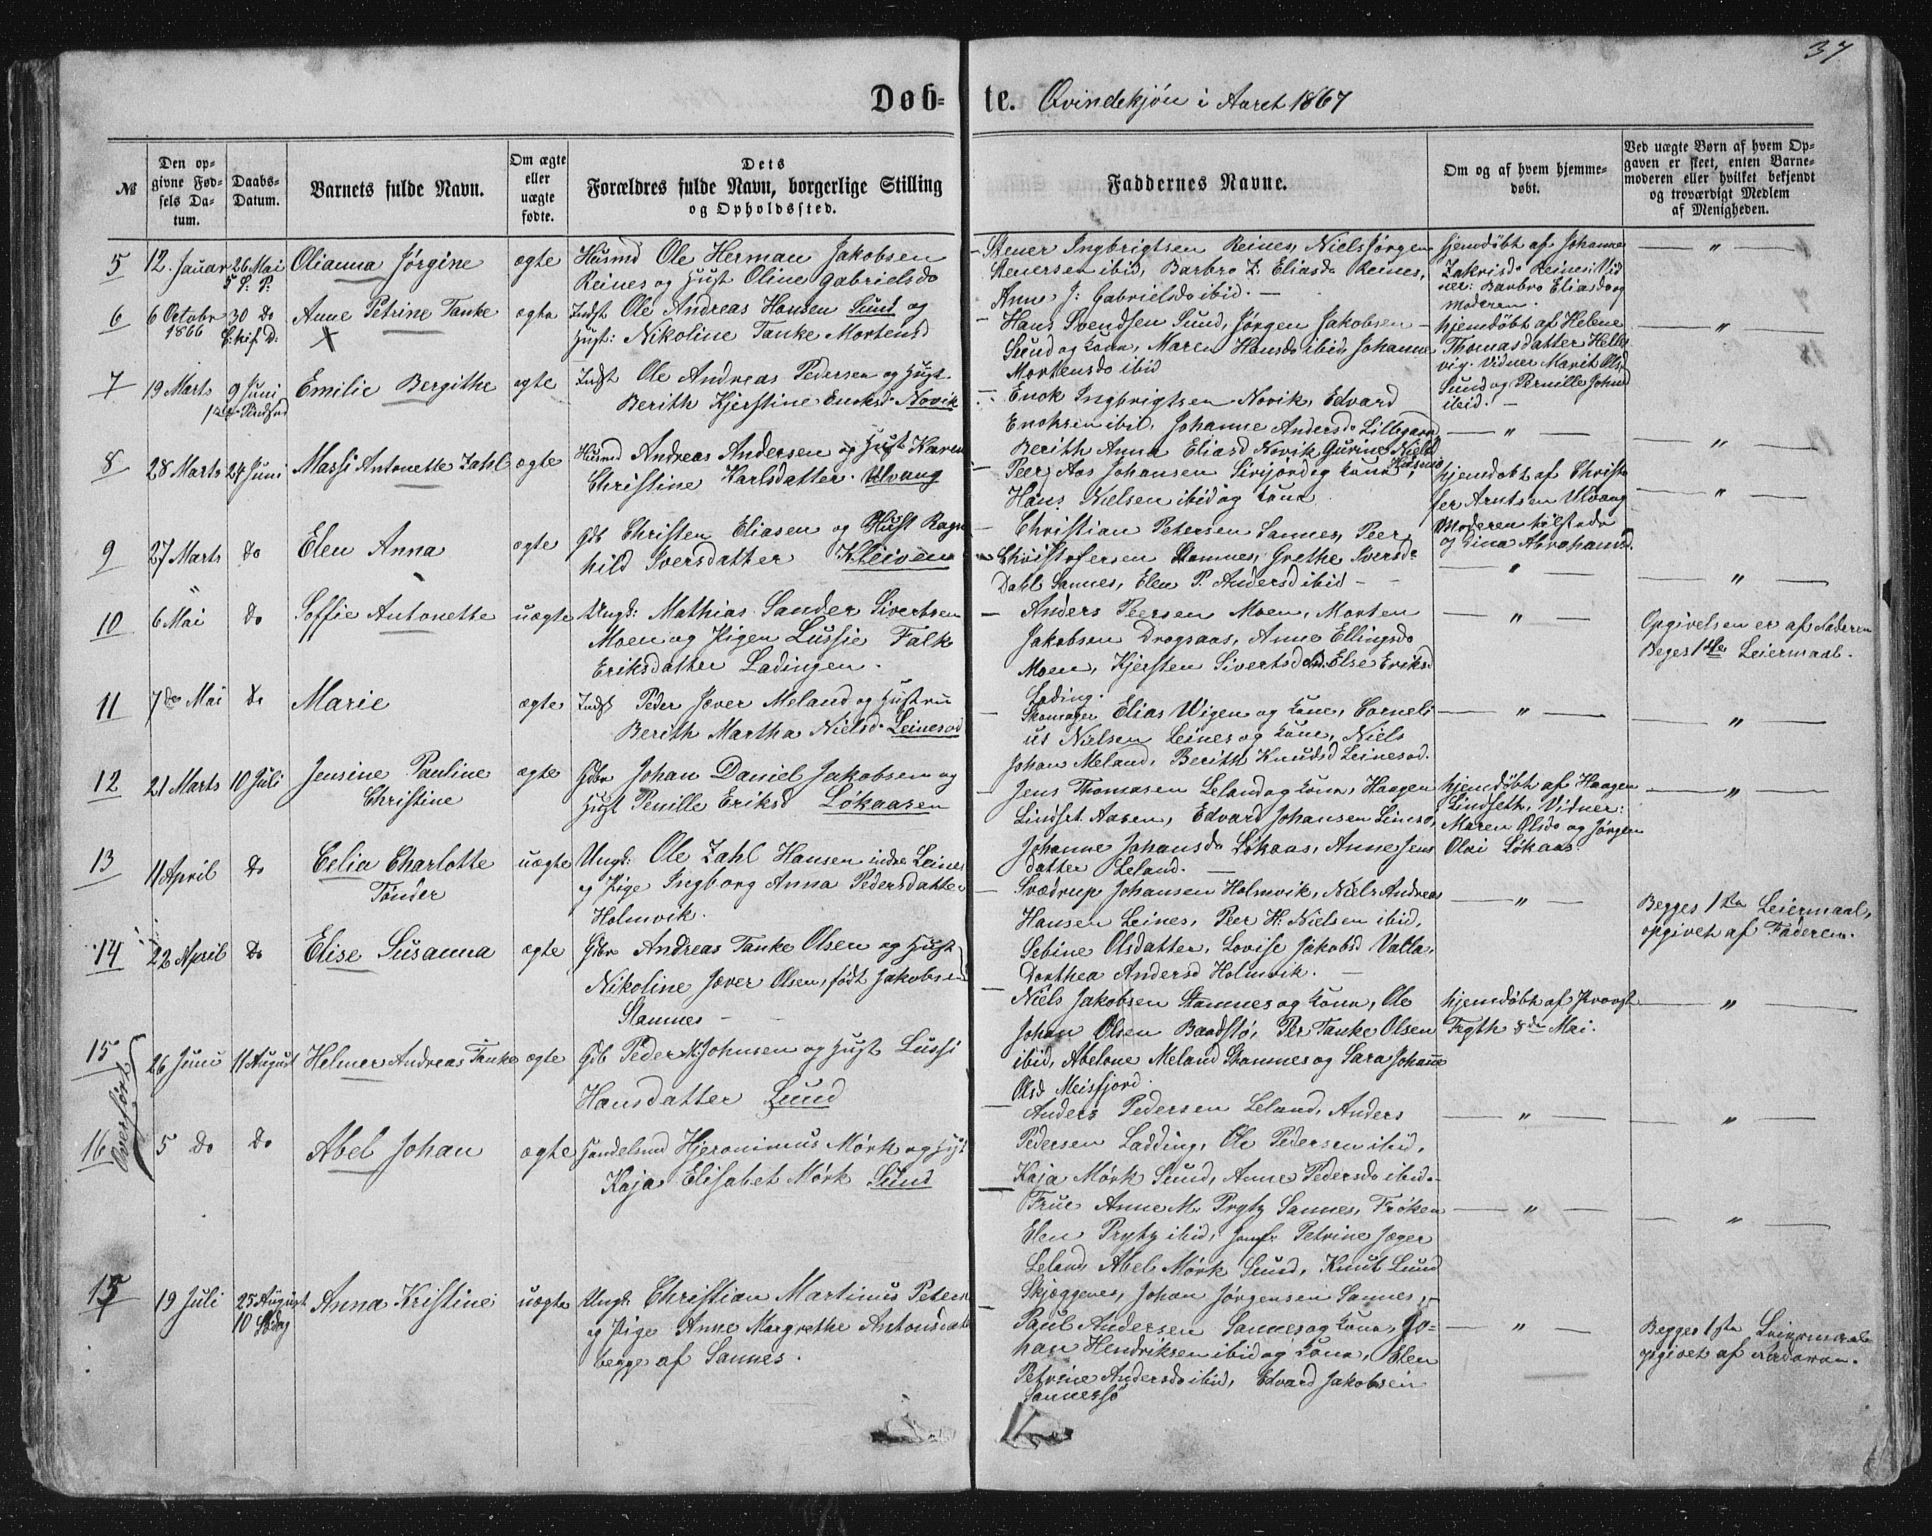 37
Døb- te. Qvindekjön i Aaret 1867
№
Den op-
givne Fød-
sels Da-
tum.
Daabs-
Datum.
Barnets fulde Navn.
Om ægte
eller
uægte
fødte.
Dets
Forældres fulde Navn, borgerlige Stilling
og Opholdssted.
Faddernes Navne.
Om og af hvem hjemme-
døbt.
Ved uægte Børn af hvem Op-
gaven er skeet, enten Barne-
moderen eller hvilket bekjendt
og troværdigt Medlem
af Menigheden.
5 12. Januar 26 Mai Olianna Jørgine ægte Husmd Ole Herman Jakobsen
5 S. P. Reines og Hust Oline Gabrielsdo
Stener Ingbrigtsen Reines, Niels Jørgen
Stenersen ibid, Barbro Z. Eliasdo Reines,
Anne J: Gabrielsdo ibid. —
hjemdøbt af Johanne
Zakrisdo Reines: Vid
ner: Barbro Eliasdo og
moderen.
— " —
6 6 Octobr 30 Do Anne Petrine Tanke ægte Indst Ole Andreas Hansen Sund og
1866 Hust: Nikoline Tanke Mortensd
Hans Svendsen Sund, Jørgen Jakobsen
Sund og kone, Maren Hansdo ibid, Johanne
Mortensdo ibid
hjemdøbt af Helene
Thomasdatter Helle
vig. Vidner Marit Olsd
Sund og Pernille Johnd
ibid. —
— " —
7 19 Marts 9 Juni Emilie Bergithe ægte Indst Ole Andreas Pedersen og Hust
Berith Kjerstine Enoksd Novik
Enok Ingbrigtsen Novik, Edvard
Enoksen ibid, Johanne Andersdo Lillegaard
Berith Anna Eliasd Novik Gurine Nielsd
— " —
— " —
8 28 Marts 24 Juni Massi Antonette Zahl ægte Husmd Andreas Andersen og Hust Karen
Christine Karlsdatter Ulvang
Peer Aas Johansen Sivijord og kone,
Hans Nielsen ibid og kone
hjemdøbt af Christo
fer Arntsen Ulvang
Moderen tilstede
og Lina Abrahamsd.
— " —
9 27 Marts do Elen Anna ægte Gdb Christen Eliasen og Hust Ragn
hild Iversdatter Kleiven
Christian Petersen Sannes, Peer
Christofersen Stamnes, Grethe Iversd
Dahl Sannes, Elen P. Andersd ibid —
— " —
— " —
10 6 Mai do Soffie Antonette uægte Ungd: Mathias Sander Sivertsen
Moen og Pigen Lussie Falk
Eriksdatter Ladingen.
Anders Peersen Moen, Morten
Jakobsen Dragsaas, Anne Ellingsdo
Moen, Kjersten Sivertsd ibid. Else Eriksd
Lading.
— " —
Opgivelsen er af Faderen
Beges 1ste Leiermaal.
11 7de Mai do Marie ægte Indst Peder Jæver Meland og Hustru
Berith Martha Nielsd Leinesod
Skomager Elias Wigen og kone, Corneli
us Nielsen Leines og kone, Niels
Johan Meland, Berith Knudsd Leinesod.
— " —
— " —
12 21 Marts 10 Juli Jensine Pauline ægte Gdbr Johan Daniel Jakobsen og
Christine Hust Penille Eriksd Løkaasen
Jens Thomasen Leland og kone, Haagen
Lindset Aasen, Edvard Johansen Limso,
Johanne Johansdo Løkaas, Anne Jens
datter Leland. —
hjemdøbt af Haagen
Lindseth, Vidner:
Maren Olsdo og Jørgen
Olai Løkaas
— " —
13 11 April do Celia Charlotte uægte Ungd: Ole Zahl Hansen indre Leines
Tønder og Pige Ingborg Anna Pedersdatter
Holmvik.
Sværdrup Johansen Holmvik, Niels Andreas
Hansen Leines, Peer H. Nielsen ibid,
Sebine Olsdatter, Lovise Jakobsd Valla,
Dorthea Andersd Holmvik. —
— " —
Begges 1ste Leiermaal,
opgivet af Faderen.
14 22 April do Elise Susanna ægte Gdbr Andreas Tanke Olsen og Hust
Nikoline Jæver Olsen, født Jakobsen
Stamnes —
Niels Jakobsen Stamnes og kone, Ole
Johan Olsen Baadstø, Per Tanke Olsen
ibid, Abelone Meland Stamnes og Sara Johanne
Olsd Meisfjord.
hjemdøbt af Provst
Fogth 8de Mai.
— " —
Overført
15 26 Juni 11 August Helmer Andreas Tanke ægte Gdb Peder Johnsen og Hust Lussi
Hansdatter Lund
Anders Pedersen Leland, Anders
Pedersen Ladding, Ole Pedersen ibid,
Kaja Mørk Sund, Anne Pedersdo ibid.
— " —
— " —
16 5 Do Do Abel Johan ægte Handelsmd Hjeronimus Mørk og Hust
Kaja Elisabet Mørk Sund
Frue Anne M. Prytz Sannes, Frøken
Elen Prytz ibid, Jomfr Petrine Jæger
Leland, Abel Mørk Sund, Knut Lund
Skjeggenes, Johan Jørgensen Sannes,
— " —
— " —
15 19 Juli 25 August Anna Kristine uægte Ungk: Christian Martinus Petersen
10 og Pige Anne Margrethe Antonsdatt
begge af Sannes.
Paul Andersen Sannes og kone, Jo-
han Hendriksen ibid og kone, Elen
Petrine Andersdo ibid, Edvard Jakobsen
Sannessø
— " —
Begges 1ste Leiermaal
opgivet af Faderen.